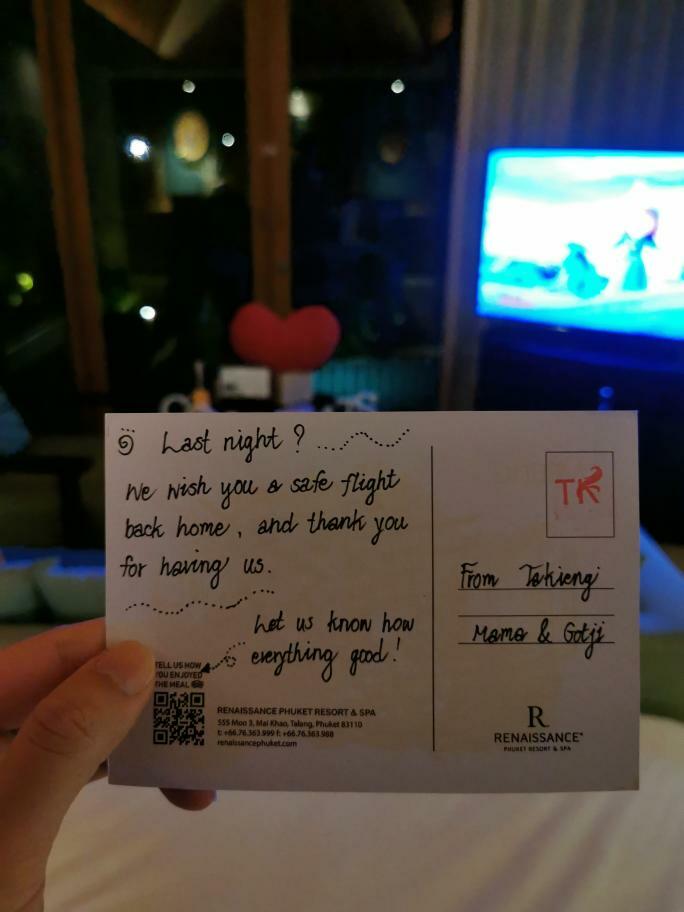 Last night ?
We wish you a safe flight
back home, and thank you
for having us.
Let us know how
everything good!
TELL US HOW
YOU ENJOYED
THE MEAL
RENAISSANCE PHUKET RESORT & SPA
555 Moo 3, Mai Khao, Talang, Phuket 83110
t: +66.76.363.999 f: +66.76.363.988
renaissancephuket.com
TK
From Takieng
Mama & Gotji
R
RENAISSANCE®
PHUKET RESORT & SPA